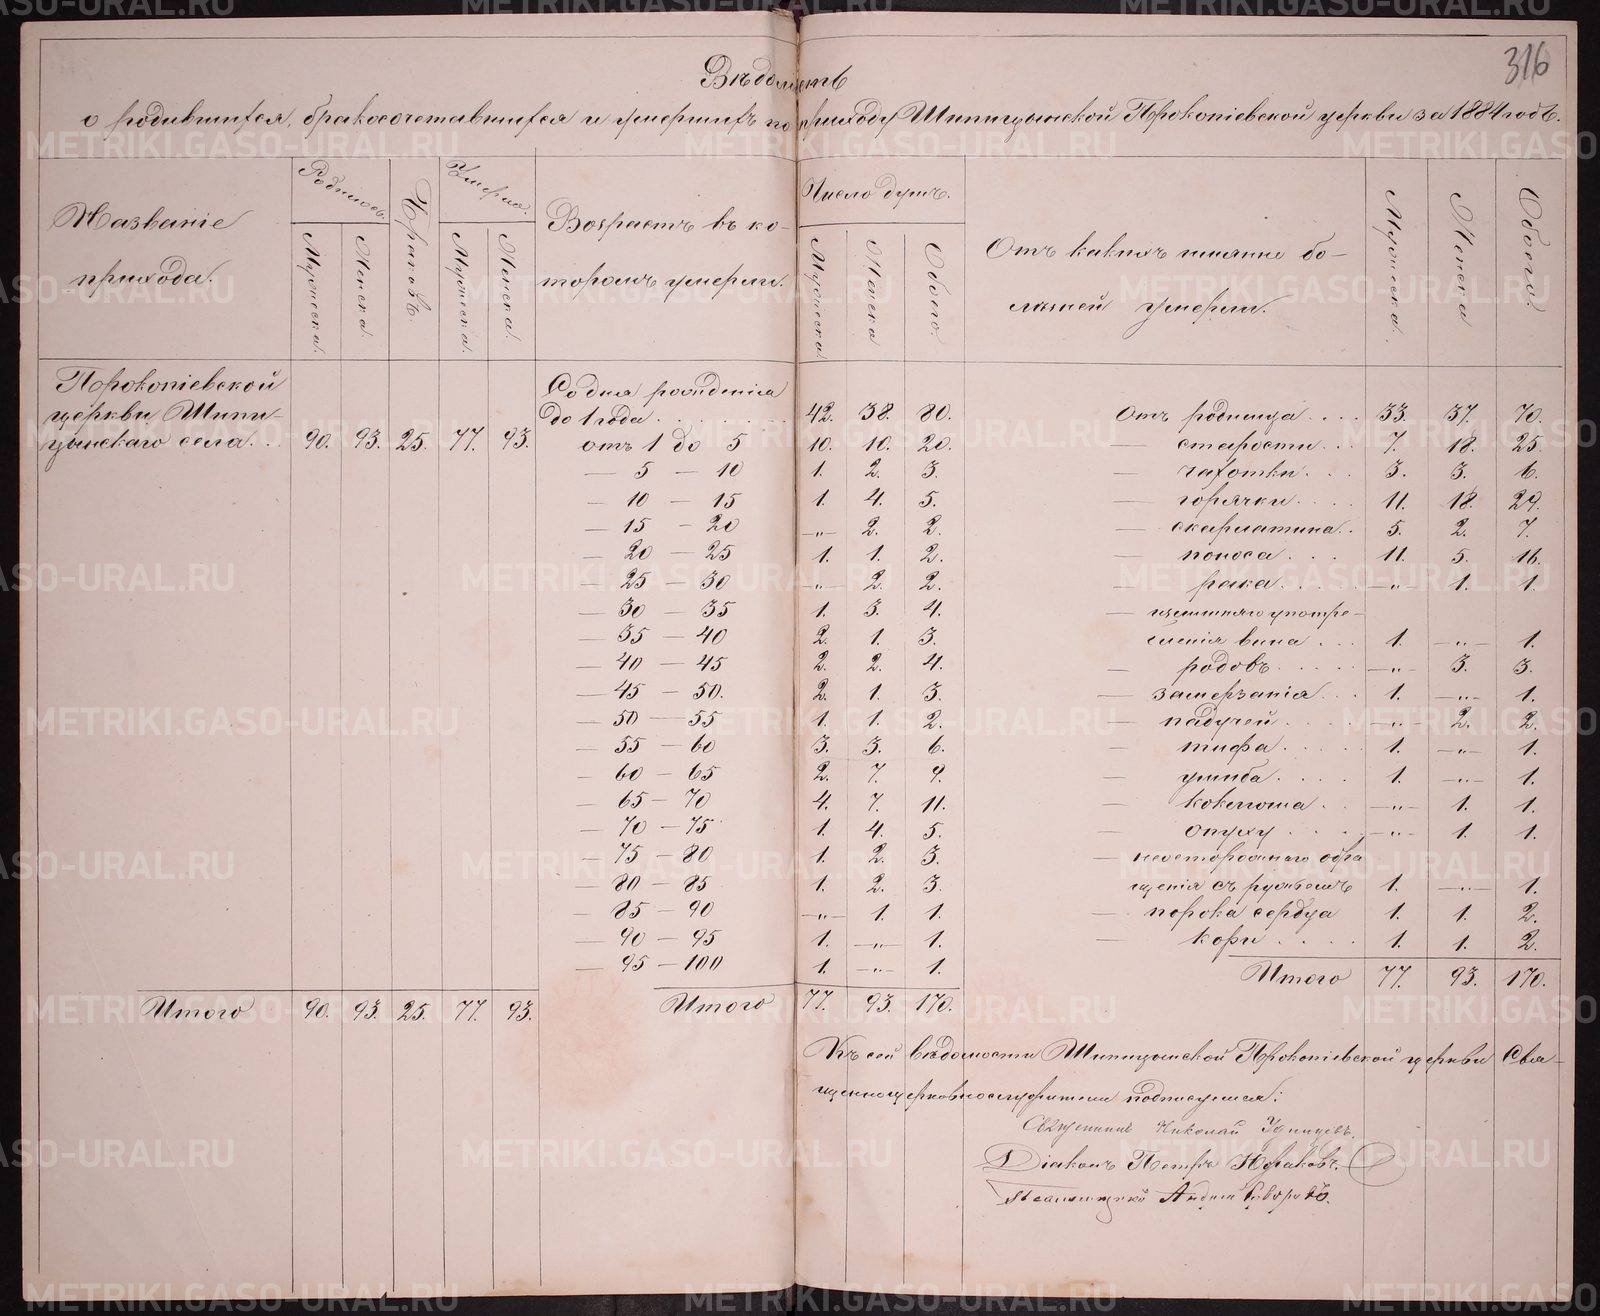 316
Вѣдомость
о родившихся, бракосочетавшихся и умершихъ по приходу Шипицынской Прокопіевской церкви за 1884 годъ.
Названіе прихода.
Родилось.
Мужеска.
Женска.
Браковъ.
Умерло.
Мужеска.
Женска.
Возрастъ въ ко-
торомъ умерли.
Число душъ.
Мужеска.
Женска
Обоего.
Отъ какихъ именно бо-
лѣзней умерли.
Мужеска.
Женска
Обоего.
Прокопіевской
церкви, Шипи-
цынскаго села. . 90. 93. 25. 77. 93.
Со дня рожденія
до 1 года . . . . . 42. 38. 80.
отъ 1 до 5 10. 10. 20.
— 5 — 10 1. 2. 3.
— 10 — 15 1. 4. 5.
— 15 — 20 —„— 2. 2.
— 20 — 25 1. 1. 2.
— 25 — 30 —„— 2. 2.
— 30 — 35 1. 3. 4.
— 35 — 40 2. 1. 3.
— 40 — 45 2. 2. 4.
— 45 — 50. 2. 1. 3.
— 50 — 55 1. 1. 2.
— 55 — 60 3. 3. 6.
— 60 — 65 2. 7. 9.
— 65 — 70 4. 7. 11.
— 70 — 75 1. 4. 5.
— 75 — 80 1. 2. 3.
— 80 — 85 1. 2. 3.
— 85 — 90 —„— 1. 1.
— 90 — 95 1. —„— 1.
— 95 — 100 1. —„— 1.
Отъ родимца . . . . 33. 37. 70.
— старости . . . 7. 18. 25.
— чахотки . . . 3. 3. 6.
— горячки . . . 11. 18. 29.
— скарлатина . . 5. 2. 7.
— поноса . . . 11. 5. 16.
— рака . . . . —„— 1. 1.
— излишняго употре-
бленія вина . . . 1. —„— 1.
— родовъ . . . . —„— 3. 3.
— замерзанія . . . 1. —„— 1.
— падучей . . . . —„— 2. 2.
— тифа . . . . 1. —„— 1.
— ушиба . . . . 1. —„— 1.
— коклюша . . —„— 1. 1.
— опуху . . . —„— 1. 1.
— неосторожнаго обра
щенія съ ружьемъ 1. —„— 1.
— порока сердца 1. 1. 2.
— кори . . . . 1. 1. 2.
Итого 77. 93. 170.
Итого 90. 93. 25. 77. 93.
Итого 77. 93. 170.
Къ сей вѣдомости Шипицынской Прокопіевской церкви Свя-
щенноцерковнослужители подписуемся:
Священникъ Николай
Діаконъ Петръ
Псаломщикъ Андрей
METRIKI.GASO-URAL.RU